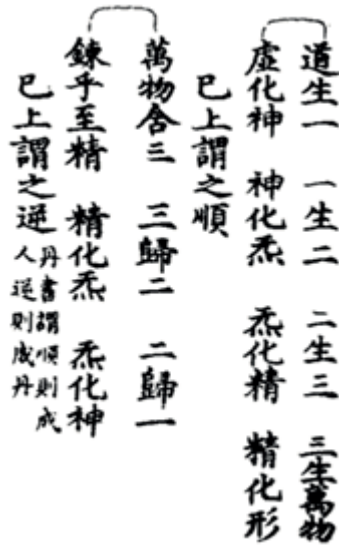 道生一 一生二 二生三 三生萬物
虛化神 神化炁 炁化精 精化形
已上謂之順
萬物含三 三歸二 二歸一
鍊乎至精 精化炁 炁化神
已上謂之逆 丹書謂順則成
人逆則成丹